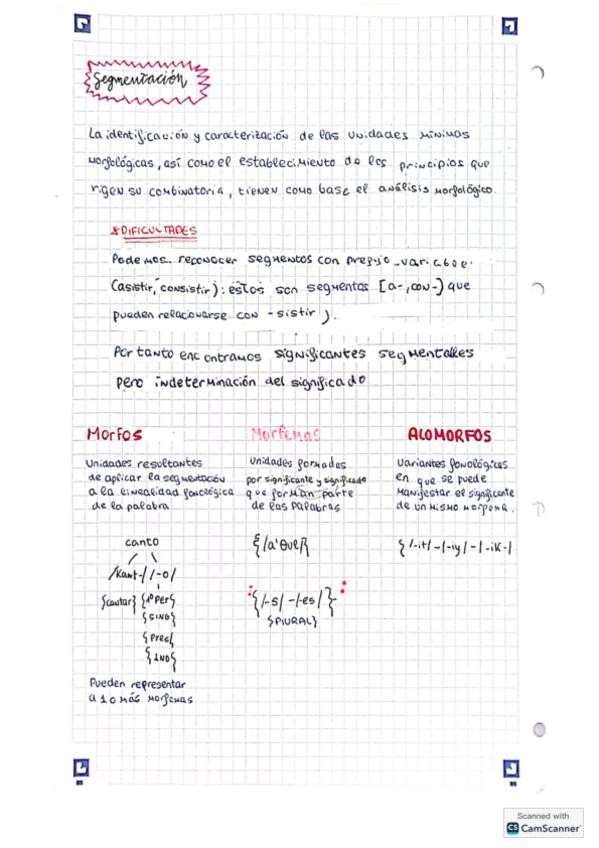 Segmentación
La identificación y caracterización de las unidades mínimas
morfológicas, así como el establecimiento de los principios que
rigen su combinatoria, tienen como base el análisis morfológico.
*DIFICULTADES
Podemos reconocer segmentos con prefijo variable.
(asistir, consistir): estos son segmentos [a-, con-] que
pueden relacionarse con -sistir).
Por tanto encontramos significantes segmentales
pero indeterminación del significado
Morfos
Unidades resultantes
de aplicar la segmentación
a la linealidad fonológica
de la palabra
canto
/kant-/ /-o/
{cantar} {1ºPer}
{SING}
{Pres}
{IND}
Pueden representar
a 1 o más morfemas
Morfemas
Unidades formadas
por significante y significado
que forman parte
de las palabras
{/a'θuθ/}
{/-s/ -/-es/}
{PLURAL}
ALOMORFOS
Variantes fonológicas
en que se puede
manifestar el significante
de un mismo morfema.
{/-it/ -/-iy/ -/-ik-/
Scanned with
CS CamScanner